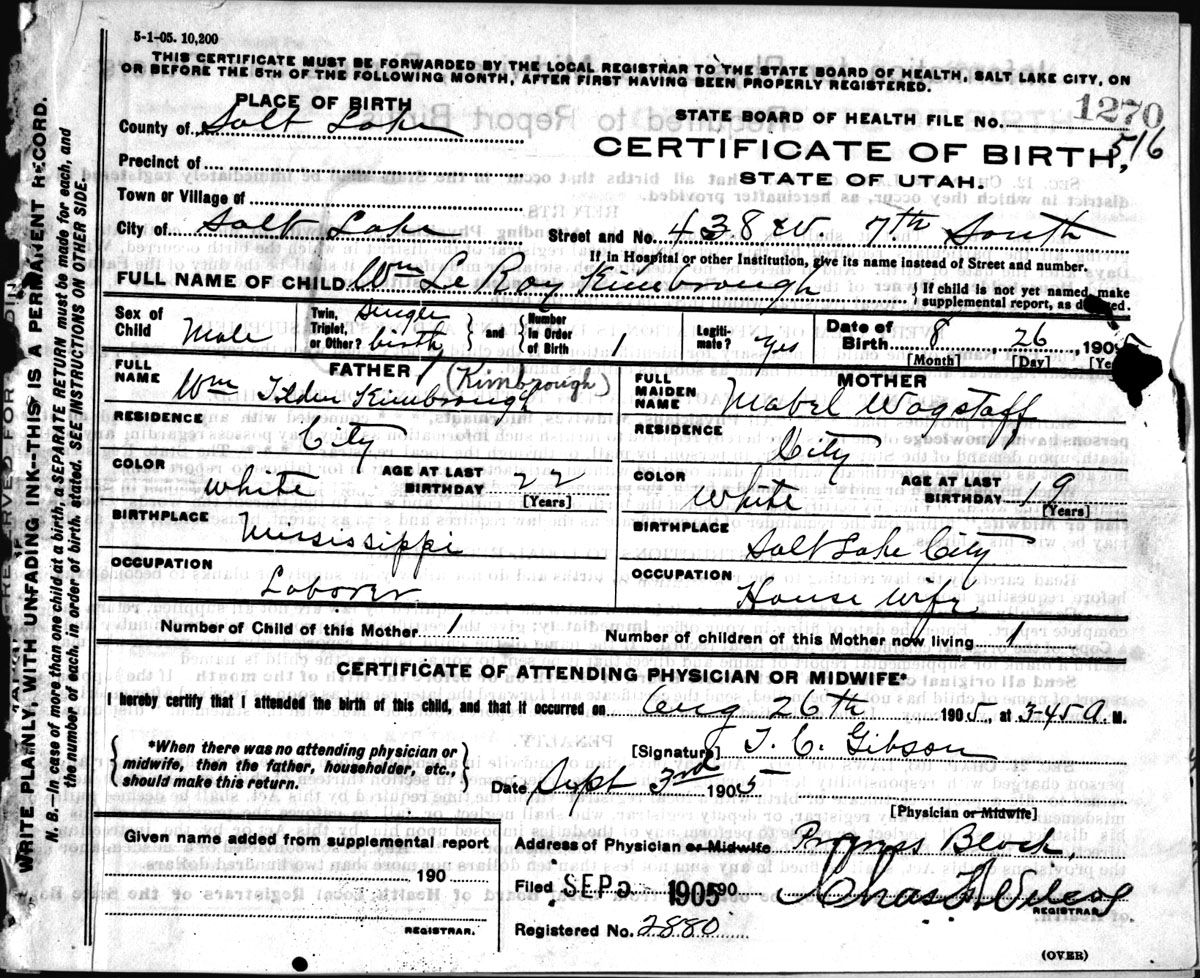 5-1-05. 10,200
THIS CERTIFICATE MUST BE FORWARDED BY THE LOCAL REGISTRAR TO THE STATE BOARD OF HEALTH, SALT LAKE CITY, ON
OR BEFORE THE 5TH OF THE FOLLOWING MONTH, AFTER FIRST HAVING BEEN PROPERLY REGISTERED.
PLACE OF BIRTH
County of Salt Lake
Precinct of
Town or Village of
City of Salt Lake
STATE BOARD OF HEALTH FILE NO. 1270
516
CERTIFICATE OF BIRTH,
STATE OF UTAH.
Street and No. 438 W. 7th South
If in Hospital or other Institution, give its name instead of Street and number.
FULL NAME OF CHILD Wm Le Roy Kimbrough
If child is not yet named, make
supplemental report, as
Sex of Child Male
Twin, Triplet, or Other? Single birth
and Number in Order of Birth 1
Legitimate? Yes
Date of Birth 8 26 1905
[Month] [Day]
FATHER (Kimbrough)
FULL NAME Wm Tilden Kimbrough
RESIDENCE City
COLOR White
AGE AT LAST BIRTHDAY 22
[Years]
BIRTHPLACE Mississippi
OCCUPATION Laborer
MOTHER
FULL MAIDEN NAME Mabel Wagstaff
RESIDENCE City
COLOR White
AGE AT LAST BIRTHDAY 19
[Years]
BIRTHPLACE Salt Lake City
OCCUPATION House wife
Number of Child of this Mother 1
Number of children of this Mother now living 1
CERTIFICATE OF ATTENDING PHYSICIAN OR MIDWIFE*
I hereby certify that I attended the birth of this child, and that it occurred on Aug 26th 1905, at 3-45 A. M.
*When there was no attending physician or
midwife, then the father, householder, etc.,
should make this return.
[Signature] T. C. Gibson
Date Sept 3rd 1905
[Physician or Midwife]
Given name added from supplemental report
190
REGISTRAR.
Address of Physician or Midwife Progress Block,
Filed SEP 1905 190
REGISTRAR.
Registered No. 2880
(OVER)
WRITE PLAINLY, WITH UNFADING INK—THIS IS A PERMANENT RECORD.
N. B.—In case of more than one child at a birth, a SEPARATE RETURN must be made for each, and
the number of each, in order of birth stated. SEE INSTRUCTIONS ON OTHER SIDE.